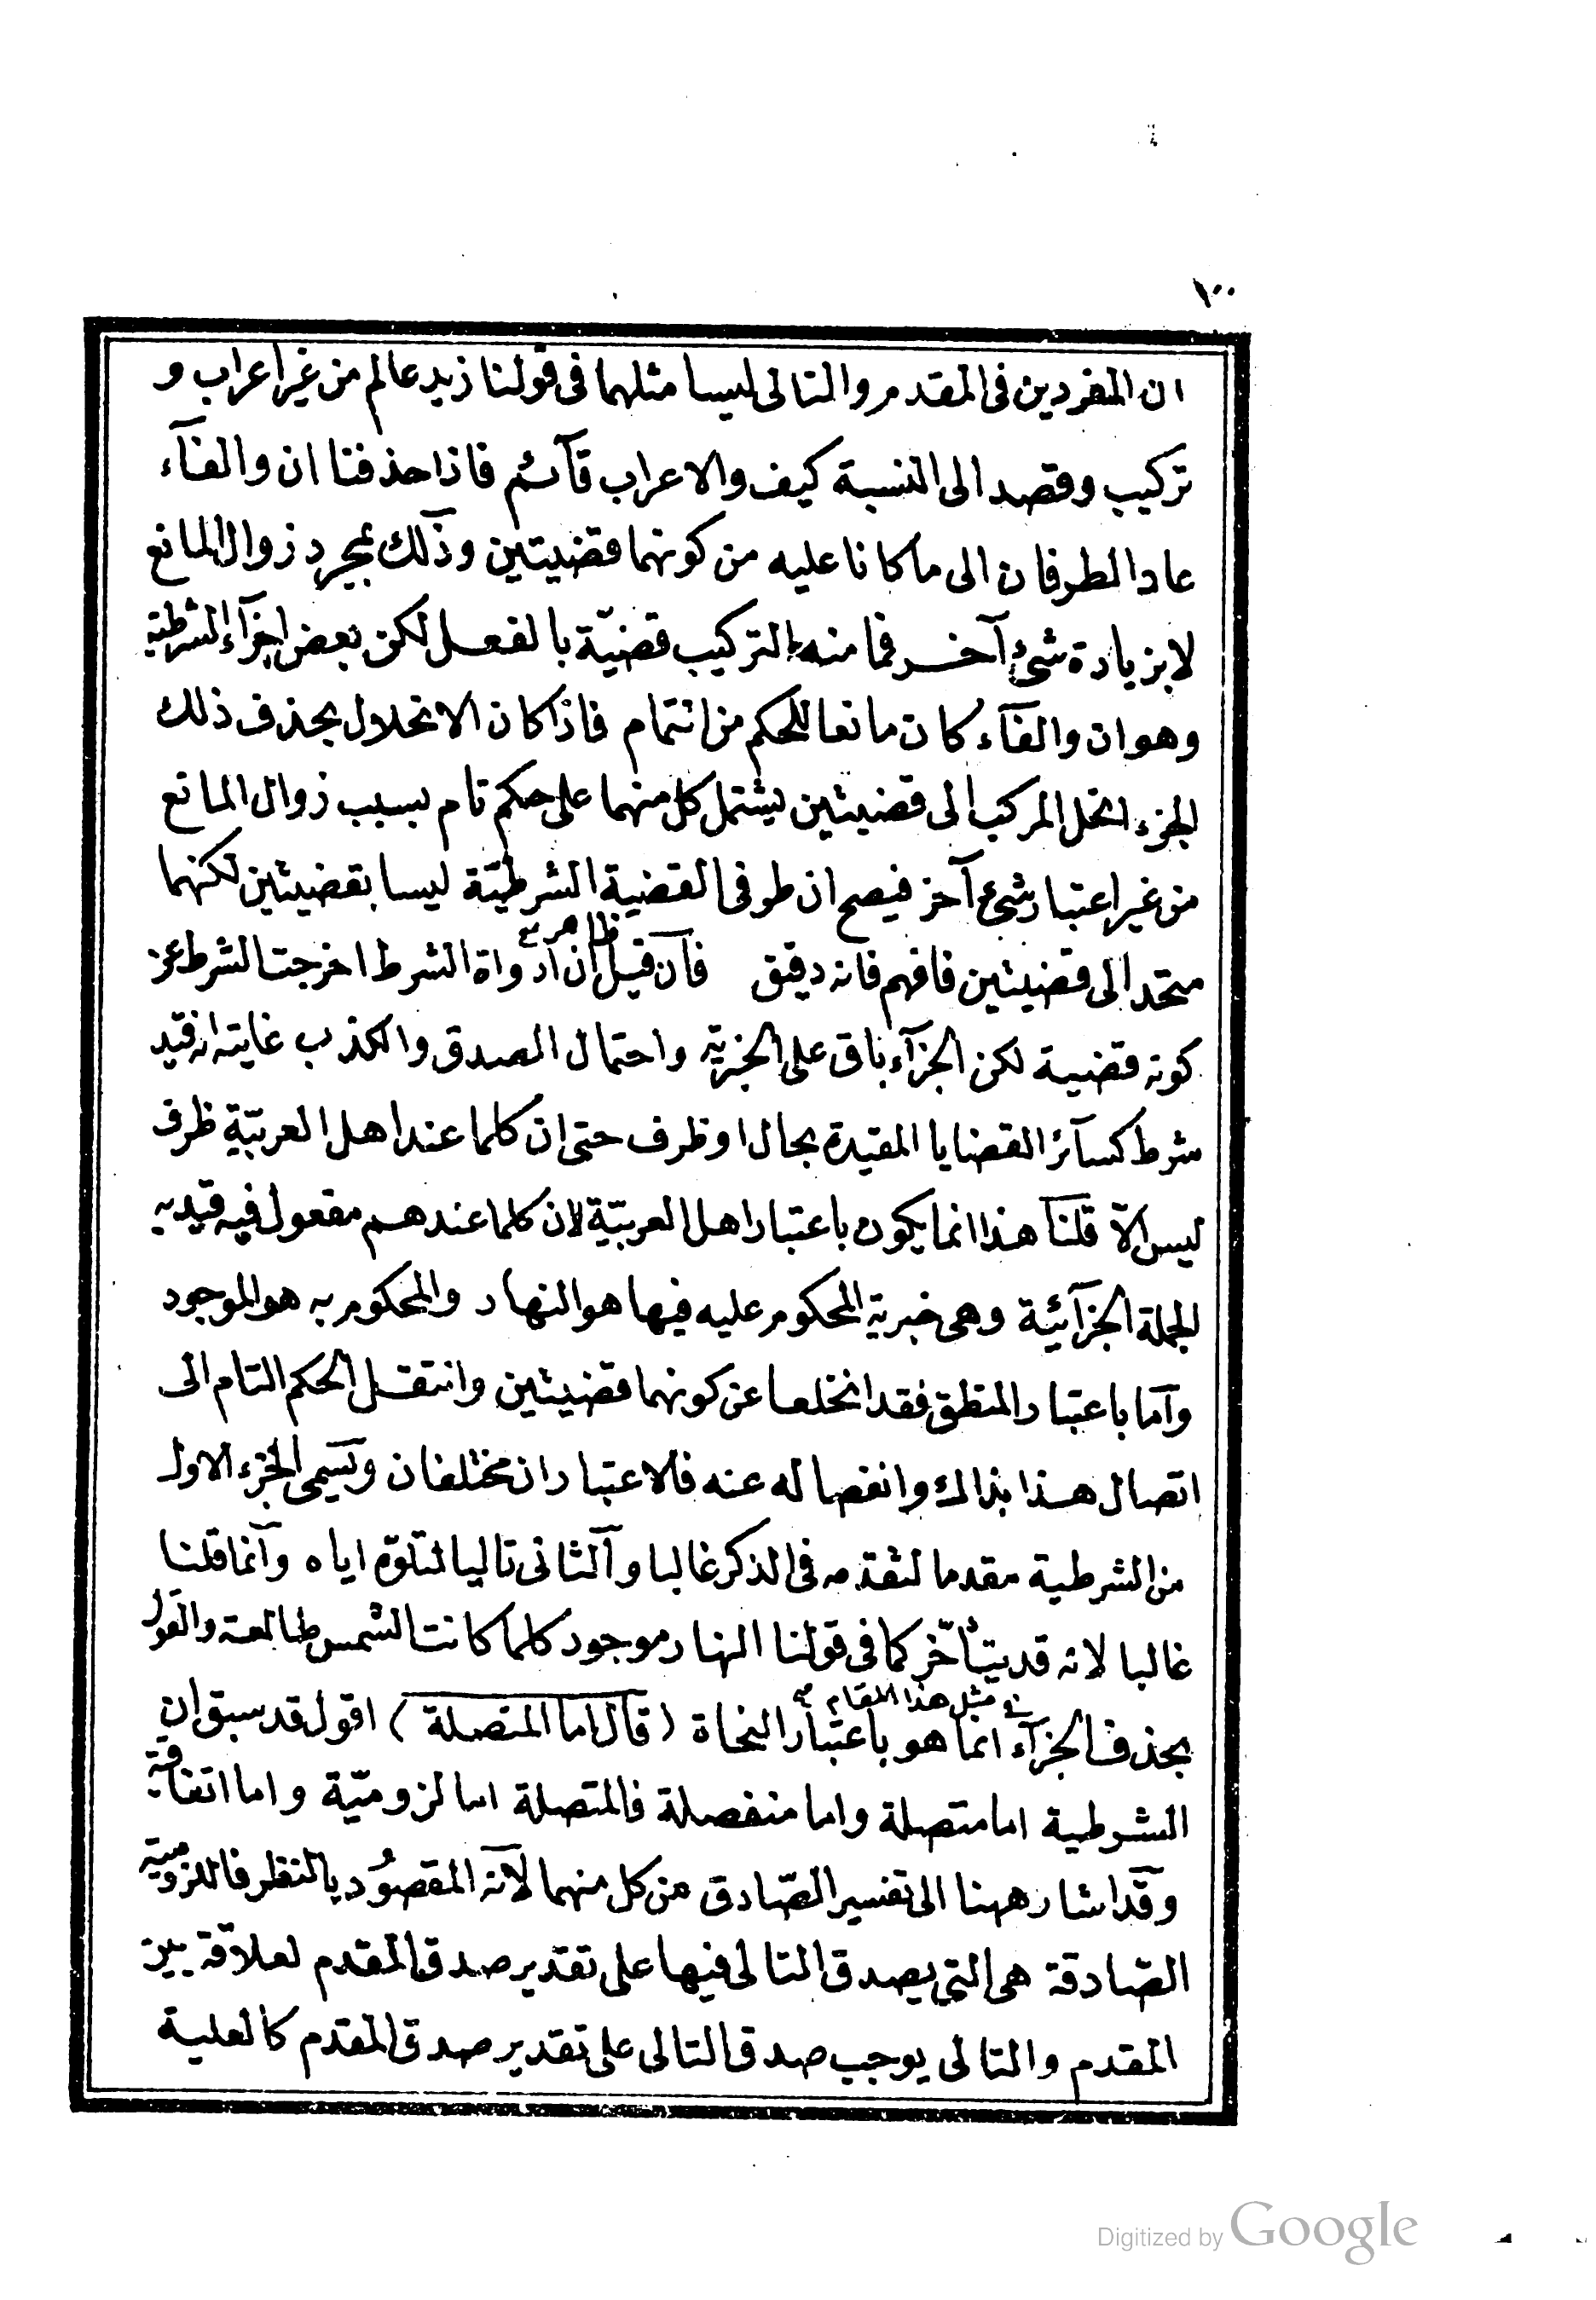 ١٠٠
ان المفردين فى المقدم والتالى ليسا مثلهما فى قولنا زيد عالم من غير اعراب و
تركيب وقصد الى النسبة كيف والاعراب قآئم فاذا حذفنا ان والفآء
عاد الطرفان الى ما كانا عليه من كونهما قضيتين وذلك بمجرد زوال المانع
لا بزيادة شئ آخر فما منه التركيب قضيّة بالفعل لكن بعض اجزآء الشرطية
وهو ان والفآء كان مانعا للحكم من التمام فاذا كان الانحلال بحذف ذلك
الجزء انحل المركب الى قضيتين يشتمل كل منهما على حكم تام بسبب زوال المانع
من غير اعتبار شئ آخر فيصح ان طرفى القضية الشرطيّة ليسا بقضيتين لكنهما
ظاهر
متحد الى قضيتين فافهم فانه دقيق فآن قيل ان ادواة الشرط اخرجت الشرط عن
كونه قضية لكن الجزآء باق على الخبرية واحتمال الصدق والكذب غايته انه قيد
شرط كسآئر القضايا المقيدة بحال او ظرف حتى ان كلما عند اهل العربيّة ظرف
ليس الّا قلنآ هذا انما يكون باعتبار اهل العربيّة لان كلما عندهم مفعول فيه قيد به
الجملة الجزآئية وهى خبرية المحكوم عليه فيها هو النهار والمحكوم به هو الموجود
وآما باعتبار المنطق فقد انخلعا عن كونهما قضيتين وانتقل الحكم التام الى
اتصال هذا بذاك وانفصاله عنه فالاعتباران مختلفان وتسمى الجزء الاول
من الشرطية مقدما لتقدمه فى الذكر غالبا وآلثانى تاليا لتلوّه اياه وآنما قلنا
غالبا لانه قد يتأخّر كما فى قولنا النهار موجود كلما كانت الشمس طالعة والقول
فى مثل هذا المقام
بحذف الجزآء انما هو باعتبار النحاة (قال اما المتصلة) اقول قد سبق ان
الشرطية اما متصلة واما منفصلة فالمتصلة اما لزوميّة واما اتفاقية
وقد اشار ههنا الى تفسير الصّادق من كل منهما لآنه المقصُود بالنظر فاللزومية
الصّادقة هى التى يصدق التالى فيها على تقدير صدق المقدم لعلاقة بين
المقدم والتالى يوجب صدق التالى على تقدير صدق المقدم كالعلية
Digitized by Google